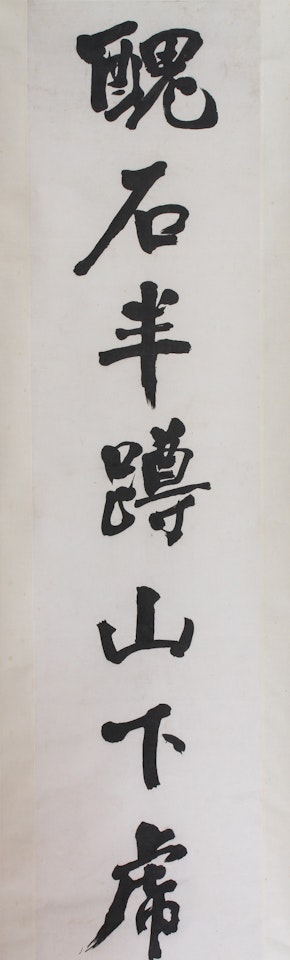 醜石半蹲山下虎